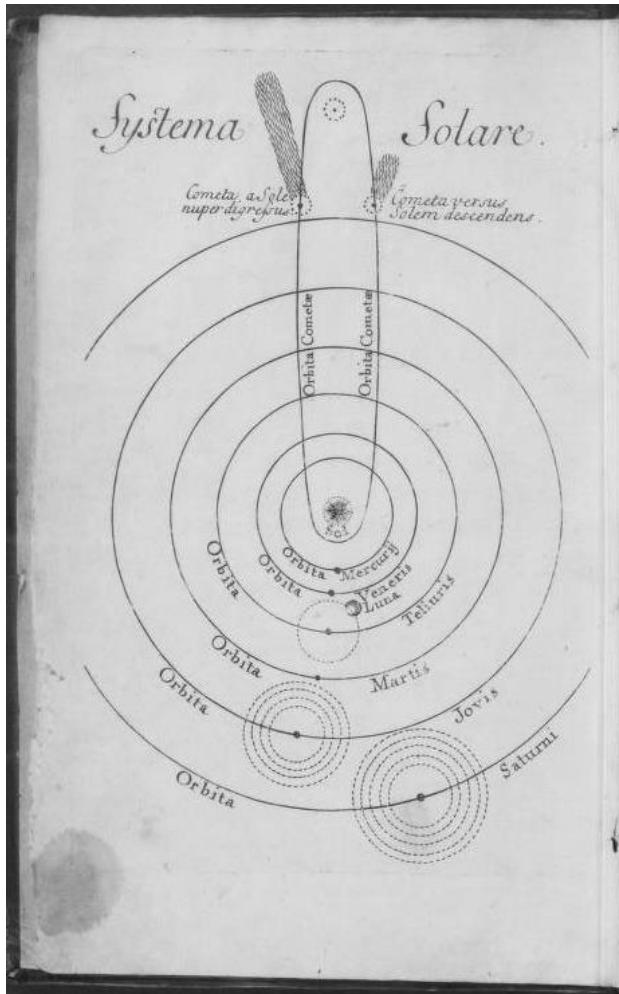 Systema Solare.
Cometa a Sole
nuper digressus.
Cometa versus
Solem descendens.
Orbita Cometæ
Orbita Cometæ
Sol
Orbita Mercurij
Orbita Veneris
Luna
Orbita Telluris
Orbita Martis
Orbita Jovis
Orbita Saturni